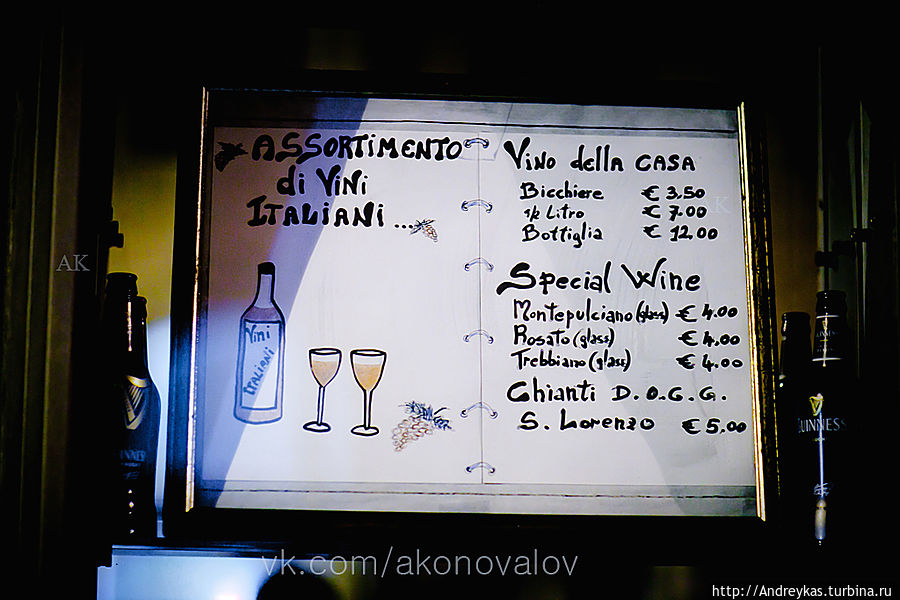 ASSORTIMENTO
di Vini
ITALIANI ...
Vini
ITALIANI
Vino della CASA
Bicchiere € 3.50
Litro € 7.00
Bottiglia € 12.00
Special Wine
Montepulciano (glass) € 4.00
Rosato (glass) € 4.00
Trebbiano (glass) € 4.00
Chianti D.O.C.G.
S. Lorenzo € 5.00
AK
GUINNESS
vk.com/akonovalov
http://Andreykas.turbina.ru